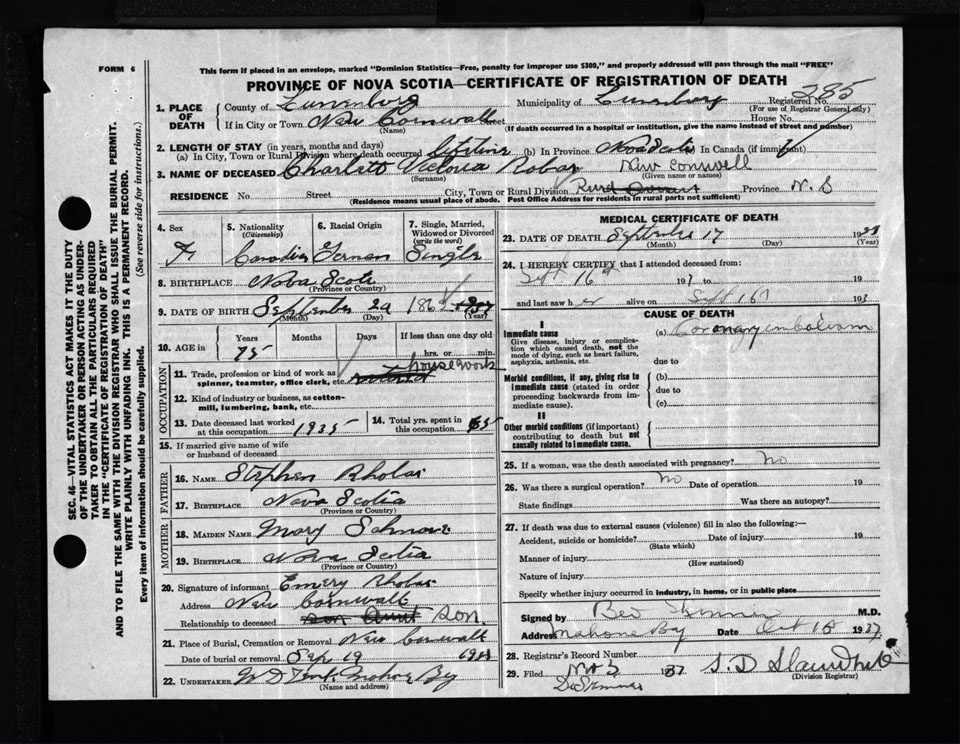 FORM 6
This form if placed in an envelope, marked "Dominion Statistics—Free, penalty for improper use $300," and properly addressed will pass through the mail "FREE"
PROVINCE OF NOVA SCOTIA—CERTIFICATE OF REGISTRATION OF DEATH
SEC. 46—VITAL STATISTICS ACT MAKES IT THE DUTY
OF THE UNDERTAKER OR PERSON ACTING AS UNDER-
TAKER TO OBTAIN ALL THE PARTICULARS REQUIRED
IN THE "CERTIFICATE OF REGISTRATION OF DEATH"
AND TO FILE THE SAME WITH THE DIVISION REGISTRAR WHO SHALL ISSUE THE BURIAL PERMIT.
WRITE PLAINLY WITH UNFADING INK. THIS IS A PERMANENT RECORD.
Every item of information should be carefully supplied. (See reverse side for instructions.)
1. PLACE OF DEATH
County of Lunenburg Municipality of Lunenburg Registered No. 285
(For use of Registrar General only)
If in City or Town New Cornwall Street House No.
(Name) (If death occurred in a hospital or institution, give the name instead of street and number)
2. LENGTH OF STAY (in years, months and days)
(a) In City, Town or Rural Division where death occurred Lifetime (b) In Province Nova Scotia In Canada (if immigrant)
3. NAME OF DECEASED Charlott Victoria Robar New Cornwell
(Surname) (Given name or names)
RESIDENCE No. Street City, Town or Rural Division Rural Province N.S
(Residence means usual place of abode. Post Office Address for residents in rural parts not sufficient)
4. Sex F
5. Nationality (Citizenship) Canadian
6. Racial Origin German
7. Single, Married, Widowed or Divorced (write the word) Single
8. BIRTHPLACE Nova Scotia
(Province or Country)
9. DATE OF BIRTH September 29 186
(Month) (Day)
10. AGE in Years 75 Months Days If less than one day hrs. or min.
OCCUPATION
11. Trade, profession or kind of work as spinner, teamster, office clerk, etc. housework
12. Kind of industry or business, as cotton-mill, lumbering, bank, etc.
13. Date deceased last worked at this occupation 1935
14. Total yrs. spent in this occupation 65
15. If married give name of wife or husband of deceased
FATHER
16. NAME Stephen Rhobar
17. BIRTHPLACE Nova Scotia
(Province or Country)
MOTHER
18. MAIDEN NAME Mary
19. BIRTHPLACE Nova Scotia
(Province or Country)
20. Signature of informant Emery Rhobar
Address New Cornwall
Relationship to deceased son Aunt son.
21. Place of Burial, Cremation or Removal New Cornwall
Date of burial or removal Sep 19 19
22. UNDERTAKER Mahone Bay
(Name and address)
MEDICAL CERTIFICATE OF DEATH
23. DATE OF DEATH September 17 19
(Month) (Day) (Year)
24. I HEREBY CERTIFY that I attended deceased from:
Sept 16th 193 to 19
and last saw her alive on Sept 16th 193
CAUSE OF DEATH
I
Immediate cause
Give disease, injury or complication which caused death, not the mode of dying, such as heart failure, asphyxia, asthenia, etc.
(a) Coronary embolism
due to
Morbid conditions, if any, giving rise to immediate cause (stated in order proceeding backwards from immediate cause).
(b)
due to
(c)
II
Other morbid conditions (if important) contributing to death but not causally related to immediate cause.
25. If a woman, was the death associated with pregnancy? No
26. Was there a surgical operation? No Date of operation 19
State findings Was there an autopsy?
27. If death was due to external causes (violence) fill in also the following:—
Accident, suicide or homicide? Date of injury 19
(State which)
Manner of injury
(How sustained)
Nature of injury
Specify whether injury occurred in industry, in home, or in public place
Signed by M.D.
Address Mahone Bay Date Oct 18 1937.
28. Registrar's Record Number
29. Filed Nov 3 1937 S. D
(Division Registrar)